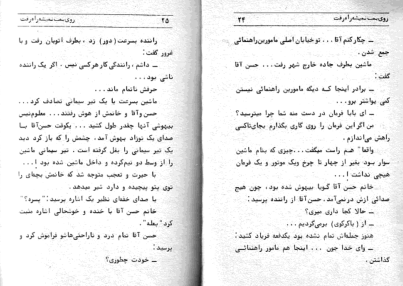 ۲۴ روی سخت نمیشه راه رفت
ــ چکارکنم آقا ... توخیابان اصلی مامورین راهنمائی
جمع شدن.
ماشین بطرف جاده خارج شهر رفت ... حسن آقا
گفت:
ــ برادر اینجا که دیگه مامورین راهنمائی نیستن
کمی یواشتر برو...
ــ ای بابا فرمان در دست منه شما چرا میترسید؟
من اگر این فرمان را روی گاری بگذارم بجای تاکسی
راهش می‌اندازم...
واقعاً هم راست میگفت... چیزی که بنام ماشین
سوار بود بغیر از چهار تا چرخ ویک موتور و یک فرمان
هیچی نداشت!...
خانم حسن آقا گویا بیهوش شده بود، چون هیچ
صدائی ازش در نمی‌آمد. حسن آقا از راننده پرسید:
ــ حالا کجا داری میری؟
ــ از (پاکرکوی) برمی‌گردیم...
هنوز جمله‌اش تمام نشده بود یکدفعه فریاد کشید:
ــ وای خدا جون ... اینجا هم مامور راهنمائی
گذاشتن.
روی سخت نمیشه راه رفت ۲۵
راننده بسرعت (دور) زد، بطرف اتوبان رفت و با
غرور گفت:
ــ داشم، رانندگی کار هرکسی نیس. اگر یک راننده
ناشی بود...
حرفش ناتمام ماند...
ماشین بسرعت با یک تیر سیمانی تصادف کرد...
حسن آقا و خانمش از هوش رفتند... معلوم نیس
بیهوشی آنها چقدر طول کشید... یکوقت حسن آقا با
صدای یک نوزاد بهوش آمد. چشمش را که باز کرد دید
تیر سیمانی را بغل گرفته است. تیر سیمانی ماشین
را از وسط دو نیم کرده و داخل ماشین شده بود!...
با حیرت و تعجب متوجه شد که خانمش بچه‌ای را
توی پتو پیچیده و دارد شیر میدهد.
با صدای خفه‌ای نظیر یک اشاره پرسید: "پسره؟"
خانم حسن آقا با خنده و خوشحالی اشاره مثبت
کرد "بعله".
حسن آقا تمام درد و ناراحتی‌هاشو فراموش کرد و
پرسید:
ــ خودت چطوری؟